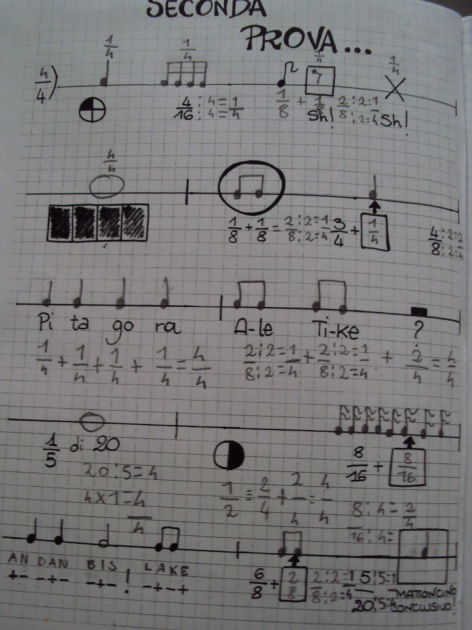 SECONDA
PROVA...
4/4) 1/4 1/4 1/4 1/4
4/16 : 4=1 : 4=4 1/8 + 1/8 2:2=1 8:2=4
Sh! Sh!
4/4
1/8 + 1/8 = 2:2=1 8:2=4 3/4 + 1/4 4:2=2 8:2=4
Pi ta go ra A-le Ti-ke ?
1/4 + 1/4 + 1/4 + 1/4 = 4/4 2:2=1 8:2=4 + 2:2=1 8:2=4 + 2/4 = 4/4
1/5 di 20
20:5=4
4x1=4/4
8/16 + 8/16
1/2 = 2/4 + 2/4 = 4/4
8:4=2/4
16:4=
AN DAN BIS ! LAKE
6/8 + 2/8 2:2=1 8:2=4 5:5=1 20:5=4
MATTONCINO
CONCLUSIVO!